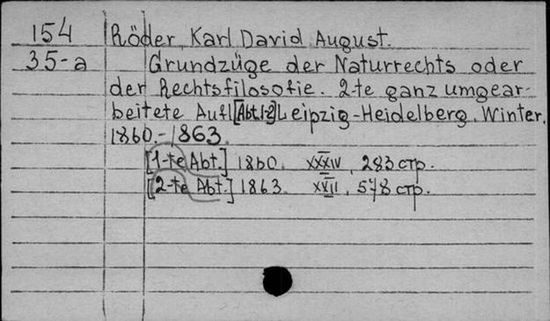 154 Röder, Karl David August.
35-a Grundzüge der Naturrechts oder
der Rechtsfilosofie. 2-te ganz umgear-
beitete Aufl [Abt.1-2] Leipzig-Heidelberg. Winter,
1860.-1863.
[1-te Abt.] 1860. XXXIV, 283 стр.
[2-te Abt.] 1863. XXII, 578 стр.